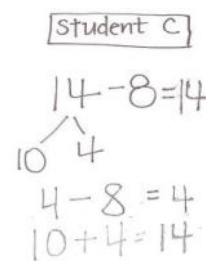 Student C
14-8=14
10 4
4-8=4
10+4=14